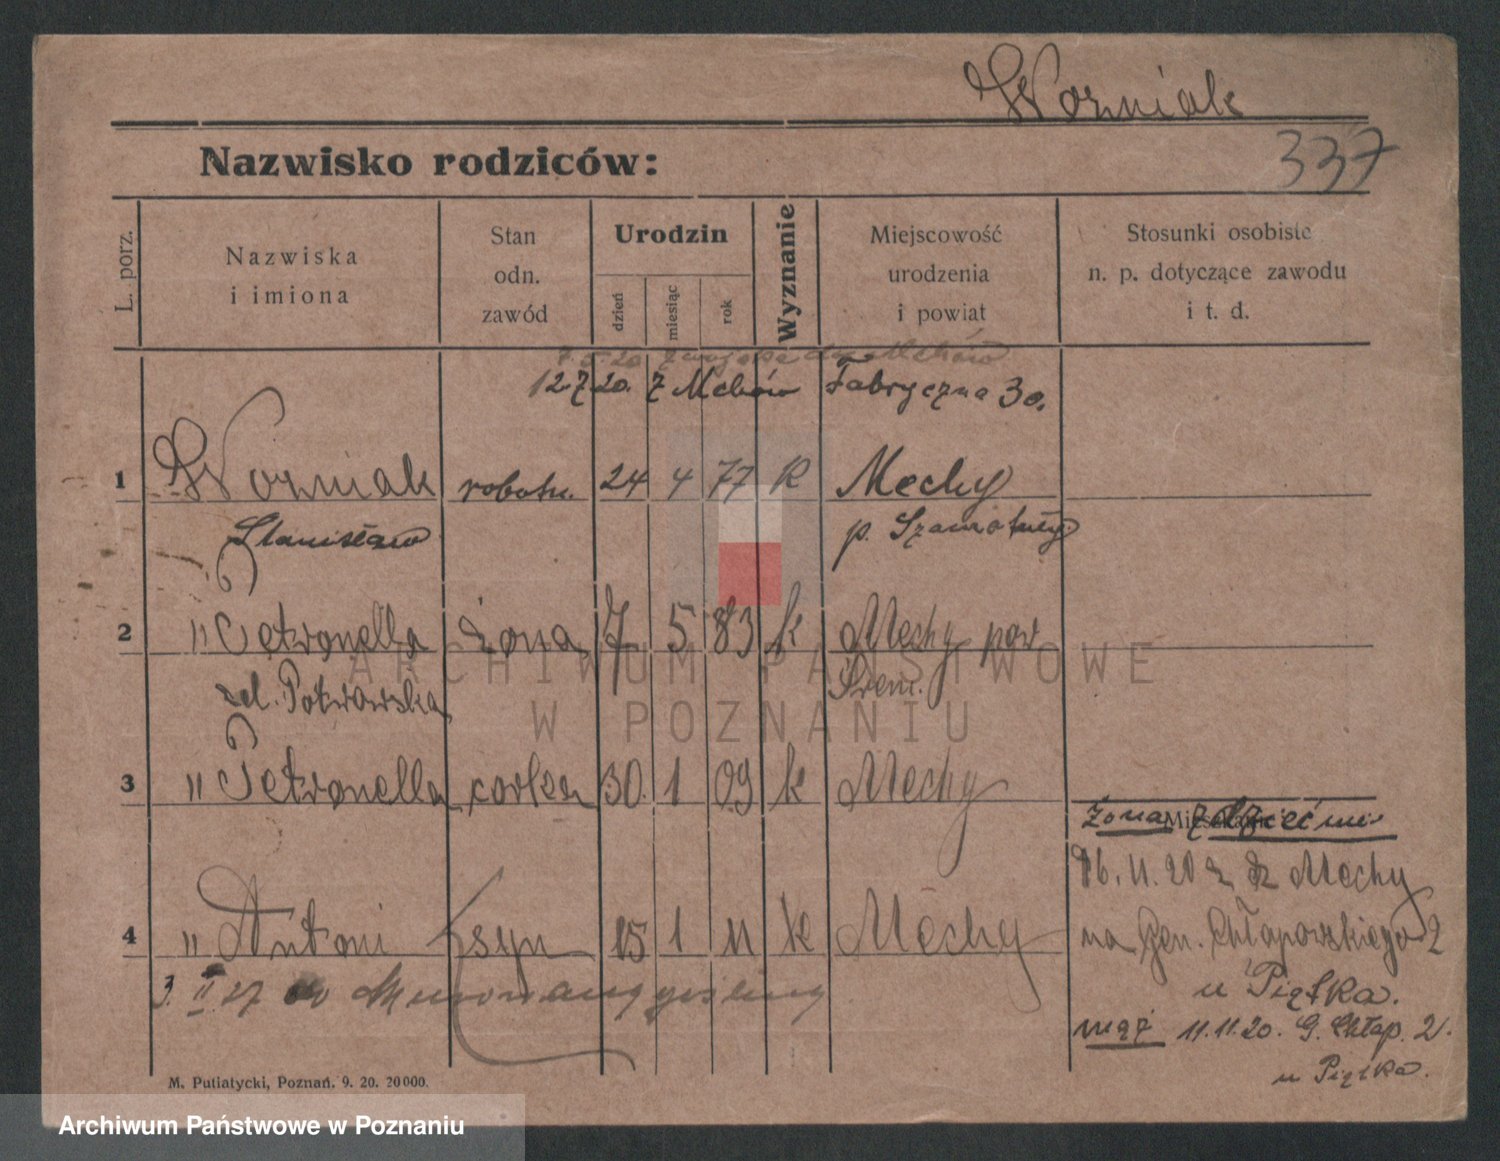 Wozniak
Nazwisko rodziców:
337
L. porz.
Nazwiska
i imiona
Stan
odn.
zawód
Urodzin
dzień
miesiąc
rok
Wyznanie
Miejscowość
urodzenia
i powiat
Stosunki osobiste
n. p. dotyczące zawodu
i t. d.
12 7 20. z Mchów Fabryczna 30.
1 Wozniak robotn. 24 4 77 K Mechy
Stanisław p. Szamotuły
2 " Petronella żona 7 5 83 k Mechy pow
Śrem.
3 " Petronella corka 30. 1 09 k Mechy
żona z dziećmi
Mieszkanie
16. 11. 20 z Mechy
4 " Antoni syn 15 1 11 k Mechy
na Gen. Chłapowskiego 2
u Piątka.
3. II 27
mąż 11.11.20. G. Chłap. 2.
u Piątka.
M. Putiatycki, Poznań. 9. 20. 20000.
ARCHIWUM PAŃSTWOWE
W POZNANIU
Archiwum Państwowe w Poznaniu